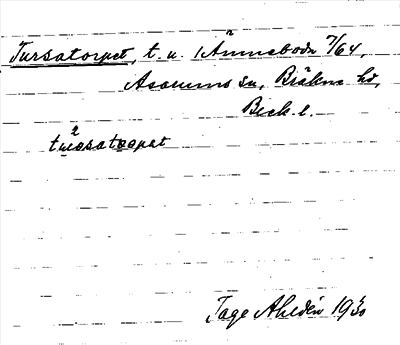 Tursatorpet, t. u. 1 Anneboda 7/64,
Asarums sn, Bräkne hd,
Blek. l.
tuosatorpat
Tage Ahldén 1930